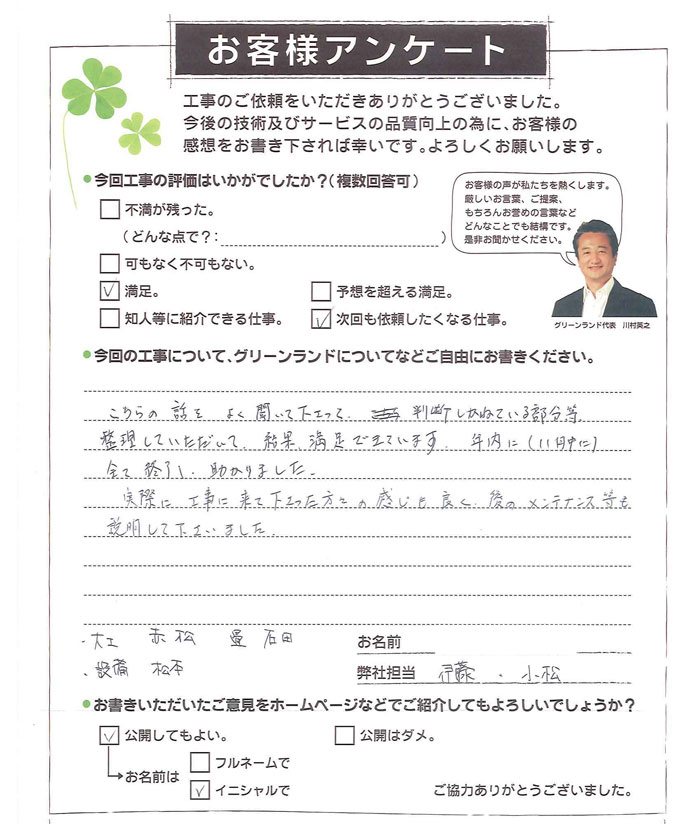 お客様アンケート
工事のご依頼をいただきありがとうございました。
今後の技術及びサービスの品質向上の為に、お客様の
感想をお書き下されば幸いです。よろしくお願いします。
●今回工事の評価はいかがでしたか？（複数回答可）
不満が残った。
（どんな点で？：　）
可もなく不可もない。
満足。
予想を超える満足。
知人等に紹介できる仕事。
次回も依頼したくなる仕事。
お客様の声が私たちを熱くします。
厳しいお言葉、ご提案、
もちろんお誉めの言葉など
どんなことでも結構です。
是非お聞かせください。
グリーンランド代表　川村英之
●今回の工事について、グリーンランドについてなどご自由にお書きください。
こちらの話をよく聞いて下さって、判断しかねている部分等
整理していただいて、結果満足できています。年内に（11月中に）
全て終了し、助かりました。
実際に工事に来て下さった方々の感じも良く、後のメンテナンス等も
説明して下さいました。
・大工　赤松　畳　石田
・設備　松本
お名前
弊社担当　伊藤・小松
●お書きいただいたご意見をホームページなどでご紹介してもよろしいでしょうか？
公開してもよい。
公開はダメ。
お名前は
フルネームで
イニシャルで
ご協力ありがとうございました。